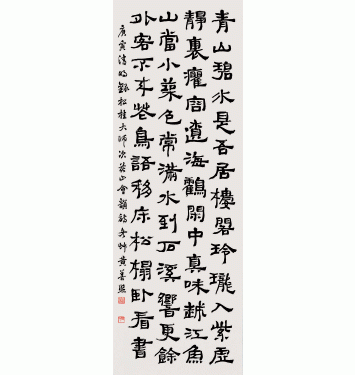 青山碧水是吾居樓閣玲瓏入紫虛
靜裏癯容遺海鶴閑中真味越江魚
山當小菜色常滿水到石溪響更餘
外客不來花鳥語移床松榻卧看書
庚寅清明錄松桂大師次山會韻詩艸黃善熙